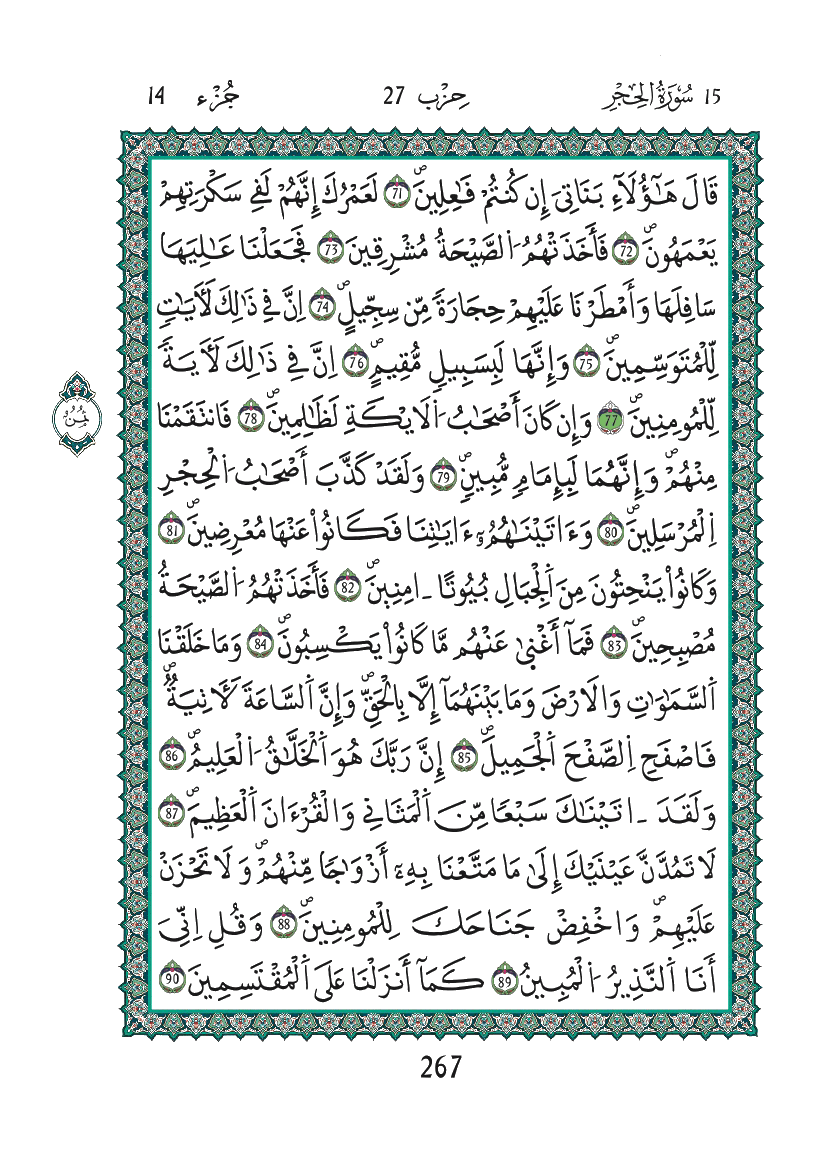 15 سُورَةُ الحِجْرِ حِزْب 27 جُزْء 14
قَالَ هَٰٓؤُلَآءِ بَنَاتِىَ إِن كُنتُمْ فَٰعِلِينَۖ 71 لَعَمْرُكَ إِنَّهُمْ لَفِے سَكْرَتِهِمْ
يَعْمَهُونَۖ 72 فَأَخَذَتْهُمُ اُ۬لصَّيْحَةُ مُشْرِقِينَ 73 فَجَعَلْنَا عَٰلِيَهَا
سَافِلَهَا وَأَمْطَرْنَا عَلَيْهِمْ حِجَارَةٗ مِّن سِجِّيلٍۖ 74 اِنَّ فِے ذَٰلِكَ لَأٓيَٰتٖ
لِّلْمُتَوَسِّمِينَۖ 75 وَإِنَّهَا لَبِسَبِيلٖ مُّقِيمٍۖ 76 اِنَّ فِے ذَٰلِكَ لَأٓيَةٗ
ثُمُن
لِّلْمُومِنِينَۖ 77 وَإِن كَانَ أَصْحَٰبُ اُ۬لَايْكَةِ لَظَٰلِمِينَۖ 78 فَانتَقَمْنَا
مِنْهُمْۖ وَإِنَّهُمَا لَبِإِمَامٖ مُّبِينٖۖ 79 وَلَقَدْ كَذَّبَ أَصْحَٰبُ اُ۬لْحِجْرِ
اِ۬لْمُرْسَلِينَۖ 80 وَءَاتَيْنَٰهُمُۥٓ ءَايَٰتِنَا فَكَانُواْ عَنْهَا مُعْرِضِينَۖ 81
وَكَانُواْ يَنْحِتُونَ مِنَ اَ۬لْجِبَالِ بُيُوتاً اٰمِنِينَۖ 82 فَأَخَذَتْهُمُ اُ۬لصَّيْحَةُ
مُصْبِحِينَۖ 83 فَمَآ أَغْنَىٰ عَنْهُم مَّا كَانُواْ يَكْسِبُونَۖ 84 وَمَا خَلَقْنَا
اَ۬لسَّمَٰوَٰتِ وَالَارْضَ وَمَا بَيْنَهُمَآ إِلَّا بِالْحَقِّۖ وَإِنَّ اَ۬لسَّاعَةَ لَأٓتِيَةٞۖ
فَاصْفَحِ اِ۬لصَّفْحَ اَ۬لْجَمِيلَۖ 85 إِنَّ رَبَّكَ هُوَ اَ۬لْخَلَّٰقُ اُ۬لْعَلِيمُۖ 86
وَلَقَدَ اٰتَيْنَٰكَ سَبْعاٗ مِّنَ اَ۬لْمَثَانِے وَالْقُرْءَانَ اَ۬لْعَظِيمَۖ 87
لَا تَمُدَّنَّ عَيْنَيْكَ إِلَىٰ مَا مَتَّعْنَا بِهِۦٓ أَزْوَٰجاٗ مِّنْهُمْۖ وَلَا تَحْزَنْ
عَلَيْهِمْۖ وَاخْفِضْ جَنَاحَكَ لِلْمُومِنِينَۖ 88 وَقُلِ اِنِّىَ
أَنَا اَ۬لنَّذِيرُ اُ۬لْمُبِينُۖ 89 كَمَآ أَنزَلْنَا عَلَى اَ۬لْمُقْتَسِمِينَۖ 90
267